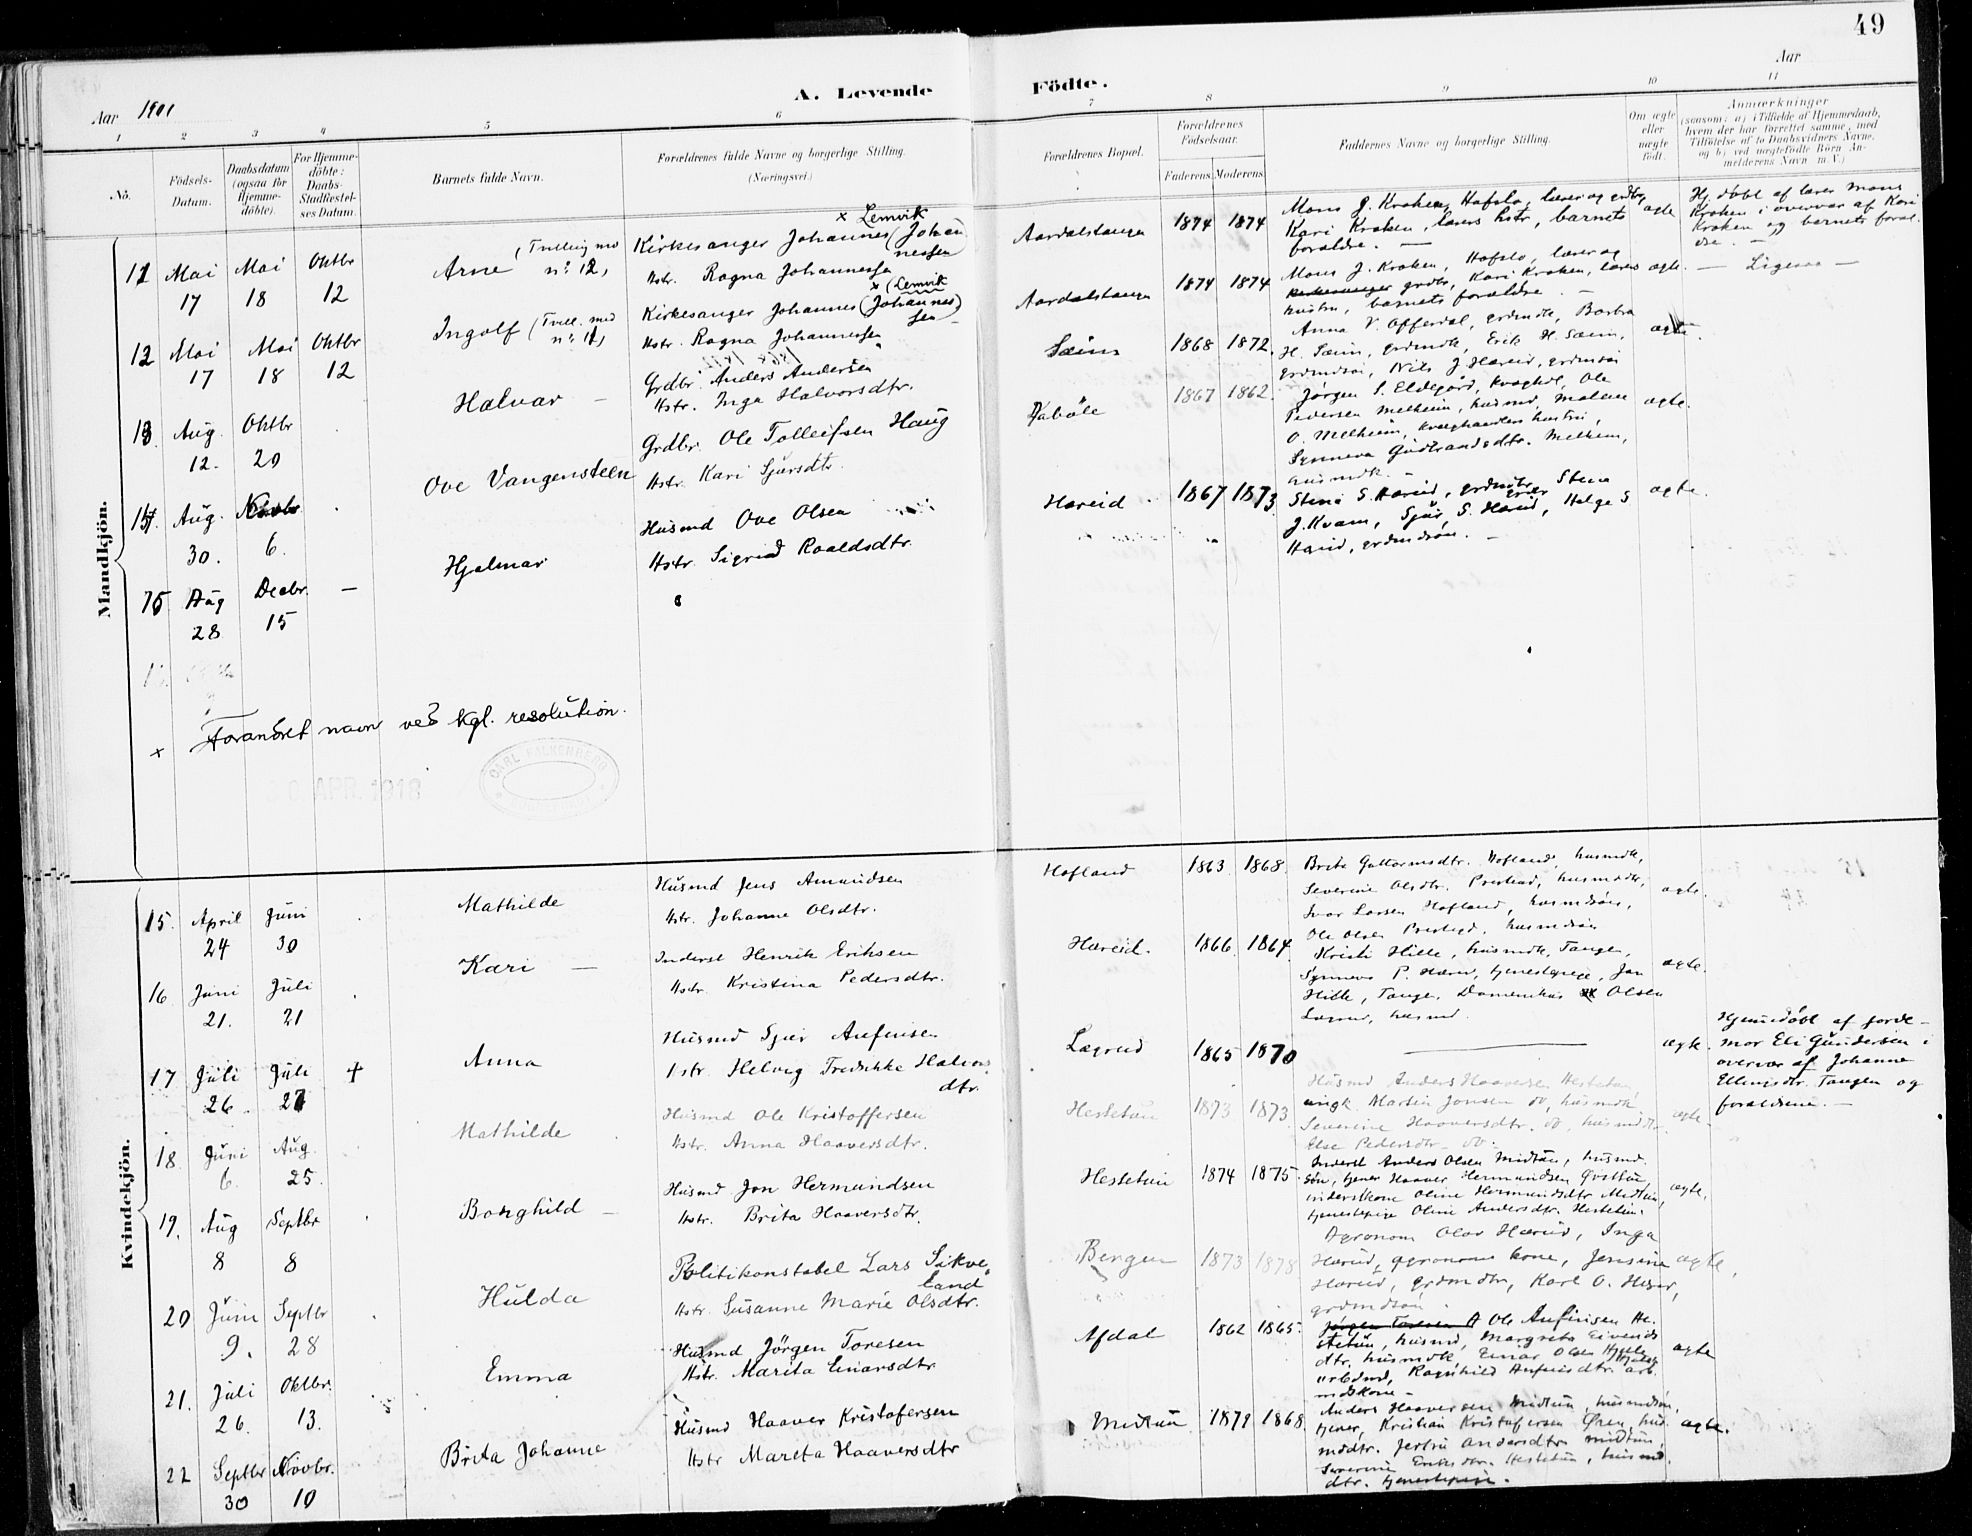 49
Aar 1901
A. Levende
Födte.
Aar
1 2 3 4 5 6 7 8 9 10 11
No.
Födsels-Datum.
Daabsdatum (ogsaa for Hjemme-döbte).
For Hjemme-döbte: Daabs-Stadfæstel-ses Datum.
Barnets fulde Navn.
Forældrenes fulde Navne og borgerlige Stilling. (Næringsvei.)
Forældrenes Bopæl.
Forældrenes Födselsaar.
Faderens. Moderens.
Faddernes Navne og borgerlige Stilling.
Om ægte eller uægte födt.
Anmærkninger
(saasom: a) i Tilfælde af Hjemmedaab, hvem der har forrettet samme, med Tilföielse af to Daabsvidners Navne, og b) ved uægtefödte Börn An-melderens Navn m. V.)
Mandkjön.
11 Mai 17 Mai 18 Oktbr 12
Arne (Tvilling med n: 12)
Kirkesanger Johannes (Johannessen) x Lemvik
Hstr. Ragna Johannessen
Aardalstangen 1874 1874
Mons J. Kroken, Hafslo, lærer og grdbr,
Kari Kroken, lærers hstr, barnets
forældre. —
ægte
Hj. döbt af lærer Mons
Kroken i overvær af Kari
Kroken og barnets foræl-
dre. —
12 Mai 17 Mai 18 Oktbr 12
Ingolf (Tvill. med n: 11)
Kirkesanger Johannes (Johannessen) x (Lemvik
Hstr. Ragna Johannessen
Aardalstangen 1874 1874
Mons J. Kroken, Hafslo, lærer og
kirkesanger grdbr, Kari Kroken, lærers
hustru, barnets forældre. —
ægte. — Ligesaa —
13 Aug. 12. Oktbr 20
Halvar —
Grdbr. Anders Andersen
Hstr. Inga Halvorsdtr.
1868 1872
Sæim 1868 1872.
Anna V. Offerdal, grdmdtr, Barbra
H. Sæim, grdmdtr, Erik H. Sæim,
grdmdsön, Nils J. Hæreid, grdmdsön
ægte.
14 Aug. 30. Novbr 6.
Ove Vangensteen
Grdbr. Ole Tolleifsen Haug
Hstr. Kari Sjursdtr.
1867 1862.
Jørgen S. Eldegård, kvæghdl, Ole
Pedersen Melheim, husmd, Malene
O. Melheim, kvæghandlers hustru,
Synneva Gudbrandsdtr. Melheim,
husmdk. —
ægte.
15 Aug 28 Decbr. 15 —
Hjalmar
Husmd Ove Olsen
Hstr. Sigrid Roaldsdtr.
Hæreid 1867 1873
Stina S. Hæreid, grdmdtr, Stina
J. Kvam, Sjur S. Hæreid, Helge S
Hæreid, grdmdsön. —
ægte.
x Forandret navn ved kgl. resolution.
30 APR. 1918
CARL FALKENBERG
Kvindekjön.
15. April 24 Juni 30
Mathilde
Husmd Jens Amundsen
Hstr. Johanne Olsdtr.
Hofland 1863 1868
Brita Guttormsdtr. Hofland, husmdk,
Severine Olsdtr. Prestegd, husmdtr,
Ivar Larsen Hofland, husmdsön,
Ole Olsen Prestegd, husmdsön
ægte.
16. Juni 21. Juli 21
Kari —
Inderst Henrik Eriksen
Hstr. Kristina Pedersdtr.
Hæreid. 1866 1864
Kristi Hille, husmdk, Tangen,
Synneva P. Hæreid, tjenestepige, Jon
Hille, Tangen, Olsen
Lægreid, husmd.
ægte.
17 Juli 26 Juli 27 +
Anna
Husmd Sjur Anfinsen
Hstr. Helvig Fredrikke Halvorsdtr.
Lægreid 1865 1870
—
ægte.
Hjemmedöbt af jorde-
mor Eli Gundersen i
overvær af Johanne
Ellingsdtr. Tangen og
forældrene. —
18. Juni 6. Aug. 25.
Mathilde
Husmd Ole Kristoffersen
Hstr. Anna Haaversdtr.
Hestetun 1873 1873
Husmd Anders Haaversen Hestetun
ungk. Martin Jonsen do, husmdk
Severine Haaversdtr. do, husmdtr
Else Pedersdtr do.
ægte.
19. Aug 8 Septbr 8
Borghild —
Husmd Jon Hermundsen
Hstr. Brita Haaversdtr.
Hestetun 1874 1875.
Inderst Anders Olsen Midtun, husmd.
sön, tjener Haaver Hermundsen
inderstkone Oline Hermundsdtr Midtun,
tjenestepige Oline Andersdtr. Hestetun.
ægte,
20 Juni 9. Septbr 28
Hulda
Politikonstabel Lars Sikveland
Hstr. Susanne Marie Olsdtr.
Bergen 1873 1878
Agronom Olav Hæreid, Inga
Hæreid, agronoms kone, Jensine
Hæreid, grdmdtr, Karl O. Hæreid,
grdmdsön.
ægte,
21. Juli 26. Oktbr. 13.
Emma
Husmd Jörgen Toresen
Hstr. Marita Einarsdtr
Afdal 1862 1865.
Jörgen Toresen A Ole Anfinsen He-
stetun, husmd, Margreta Eivinds
dtr. husmdk, Einar Olsen
arbdmd, Ragnhild Anfinsdtr. arb.
mdskone —
ægte
22 Septbr 30 Novbr. 10
Brita Johanne
Husmd Haaver Kristofersen
Hstr Mareta Haaversdtr
Midtun 1879 1868.
Anders Haaversen Midtun, husmdsön,
tjener, Kristian Kristofersen Øren, hus-
mddtr. Jertru Andersdtr Midtun
Severine Eriksdtr. Hestetun, husmd.
dtr. tjenestepige.
ægte.